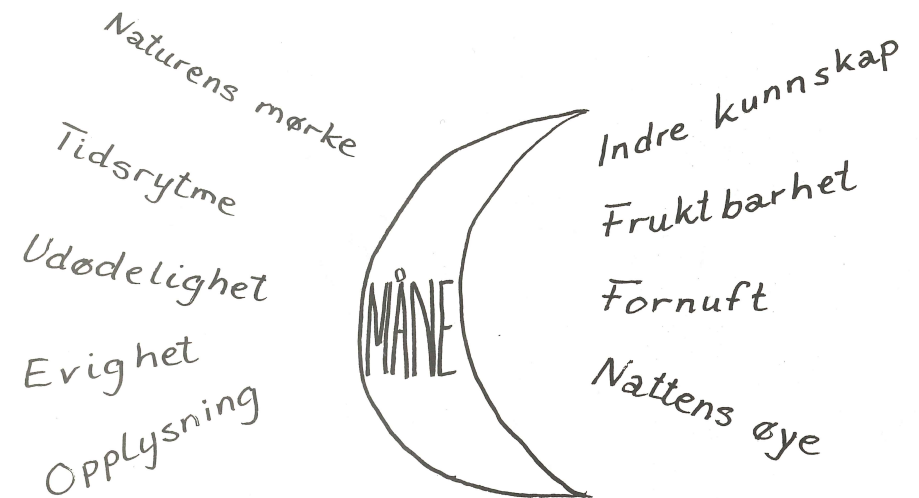 Naturens mørke
Tidsrytme
Udødelighet
Evighet
Opplysning
MÅNE
Indre kunnskap
Fruktbarhet
Fornuft
Nattens øye